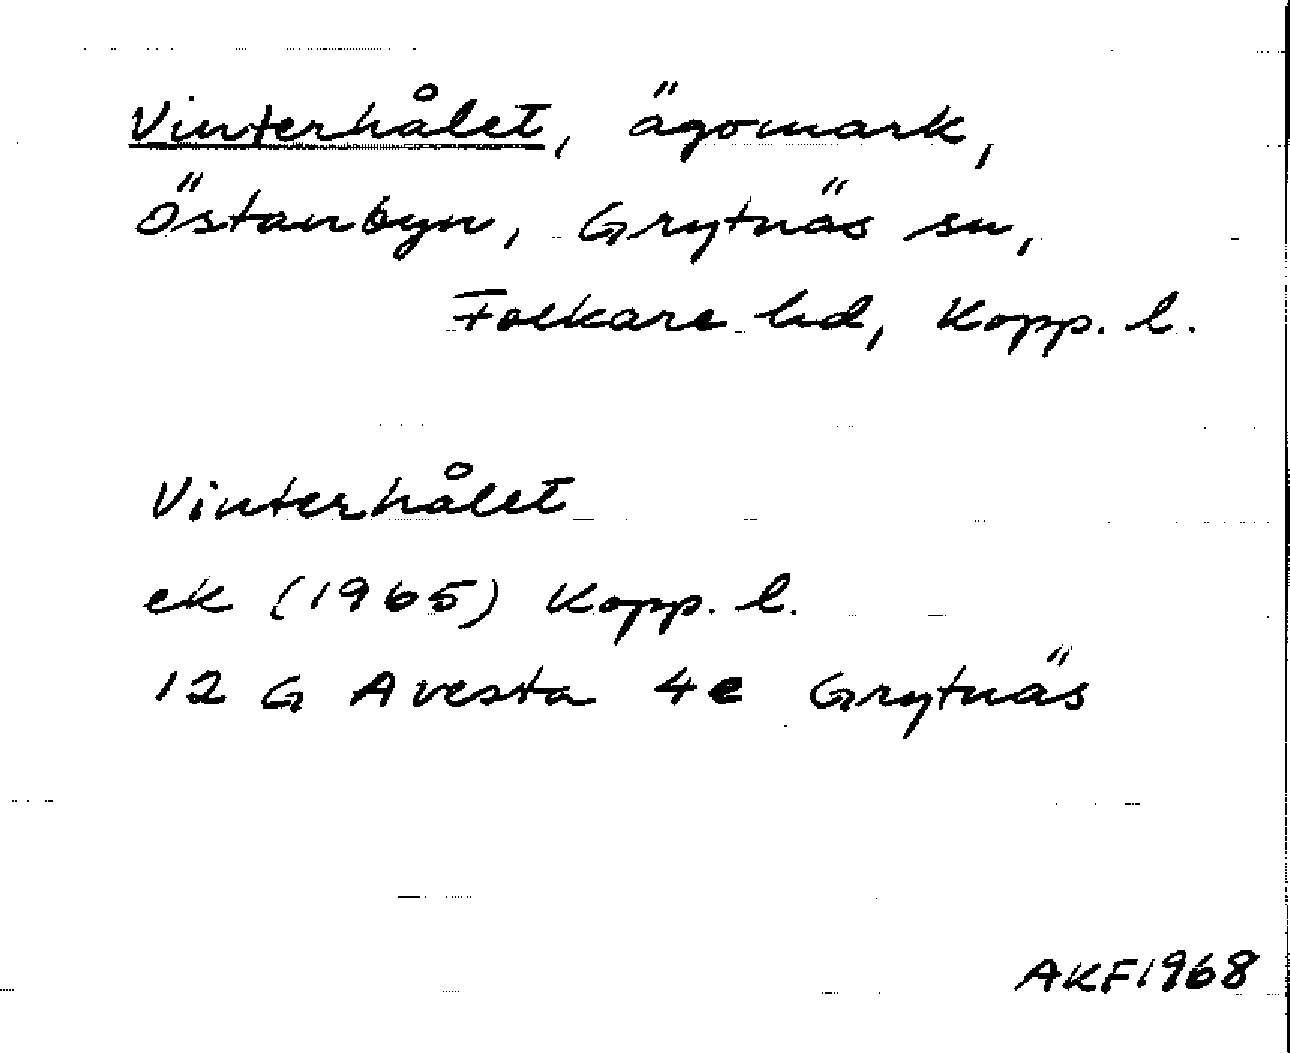 Vinterhålet, ägomark,
Östanbyn, Grytnäs sn,
Folkare hd, Kopp. l.
Vinterhålet
ek (1965) Kopp. l.
12 G Avesta 4e Grytnäs
AKF1968